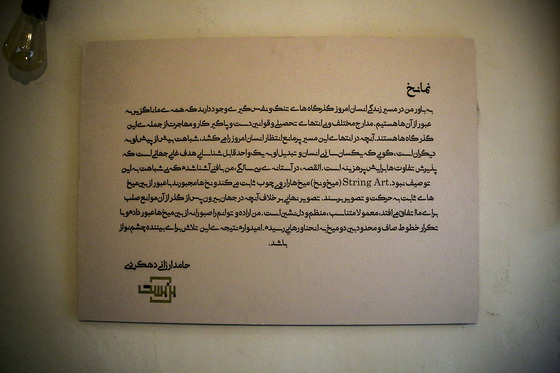 نمانخ
به باور من در مسیر زندگی انسان امروز گذرگاه های تنگ و نفس‌گیری وجود دارند که همه‌ی ما ناگزیر به
عبور از آن‌ها هستیم. مدارج مختلف و بی‌انتهای تحصیلی و قوانین دست و پاگیر کار و مهاجرت از جمله‌ی این
گذرگاه ها هستند. آنچه در انتهای این مسیر پرمانع انتظار انسان امروز را می‌کشد، شباهت بیش از پیش او به
دیگران است، گویی که یکسان‌سازی انسان و تبدیل او به یک واحد قابل شناسایی هدف غایی جهانی است که
پذیرش تفاوت‌ها برایش پرهزینه است. القصه، در آستانه‌ی سی سالگی، من با فنی آشنا شدم که بی‌شباهت به این
توصیف نبود. String Art (میخ و نخ) میخ ها را روی چوب ثابت می‌کند و نخ ها مجبورند با عبور از بین میخ
های ثابت به حرکت و تصویر برسند. تصویر نهایی بر خلاف آنچه در جهان بیرون پس از گذر از آن موانع صلب
برای ما اتفاق می‌افتد، معمولا متناسب، منظم و دلنشین است. من اراده و توانم را صبورانه از بین میخ ها عبور دادم و با
تکرار خطوط صاف و محدود بین دو میخ به انحناورهایی رسیدم. امیدوارم نتیجه‌ی این تلاش برای بیننده چشم‌نواز
باشد.
حامد ارزانی دهکردی